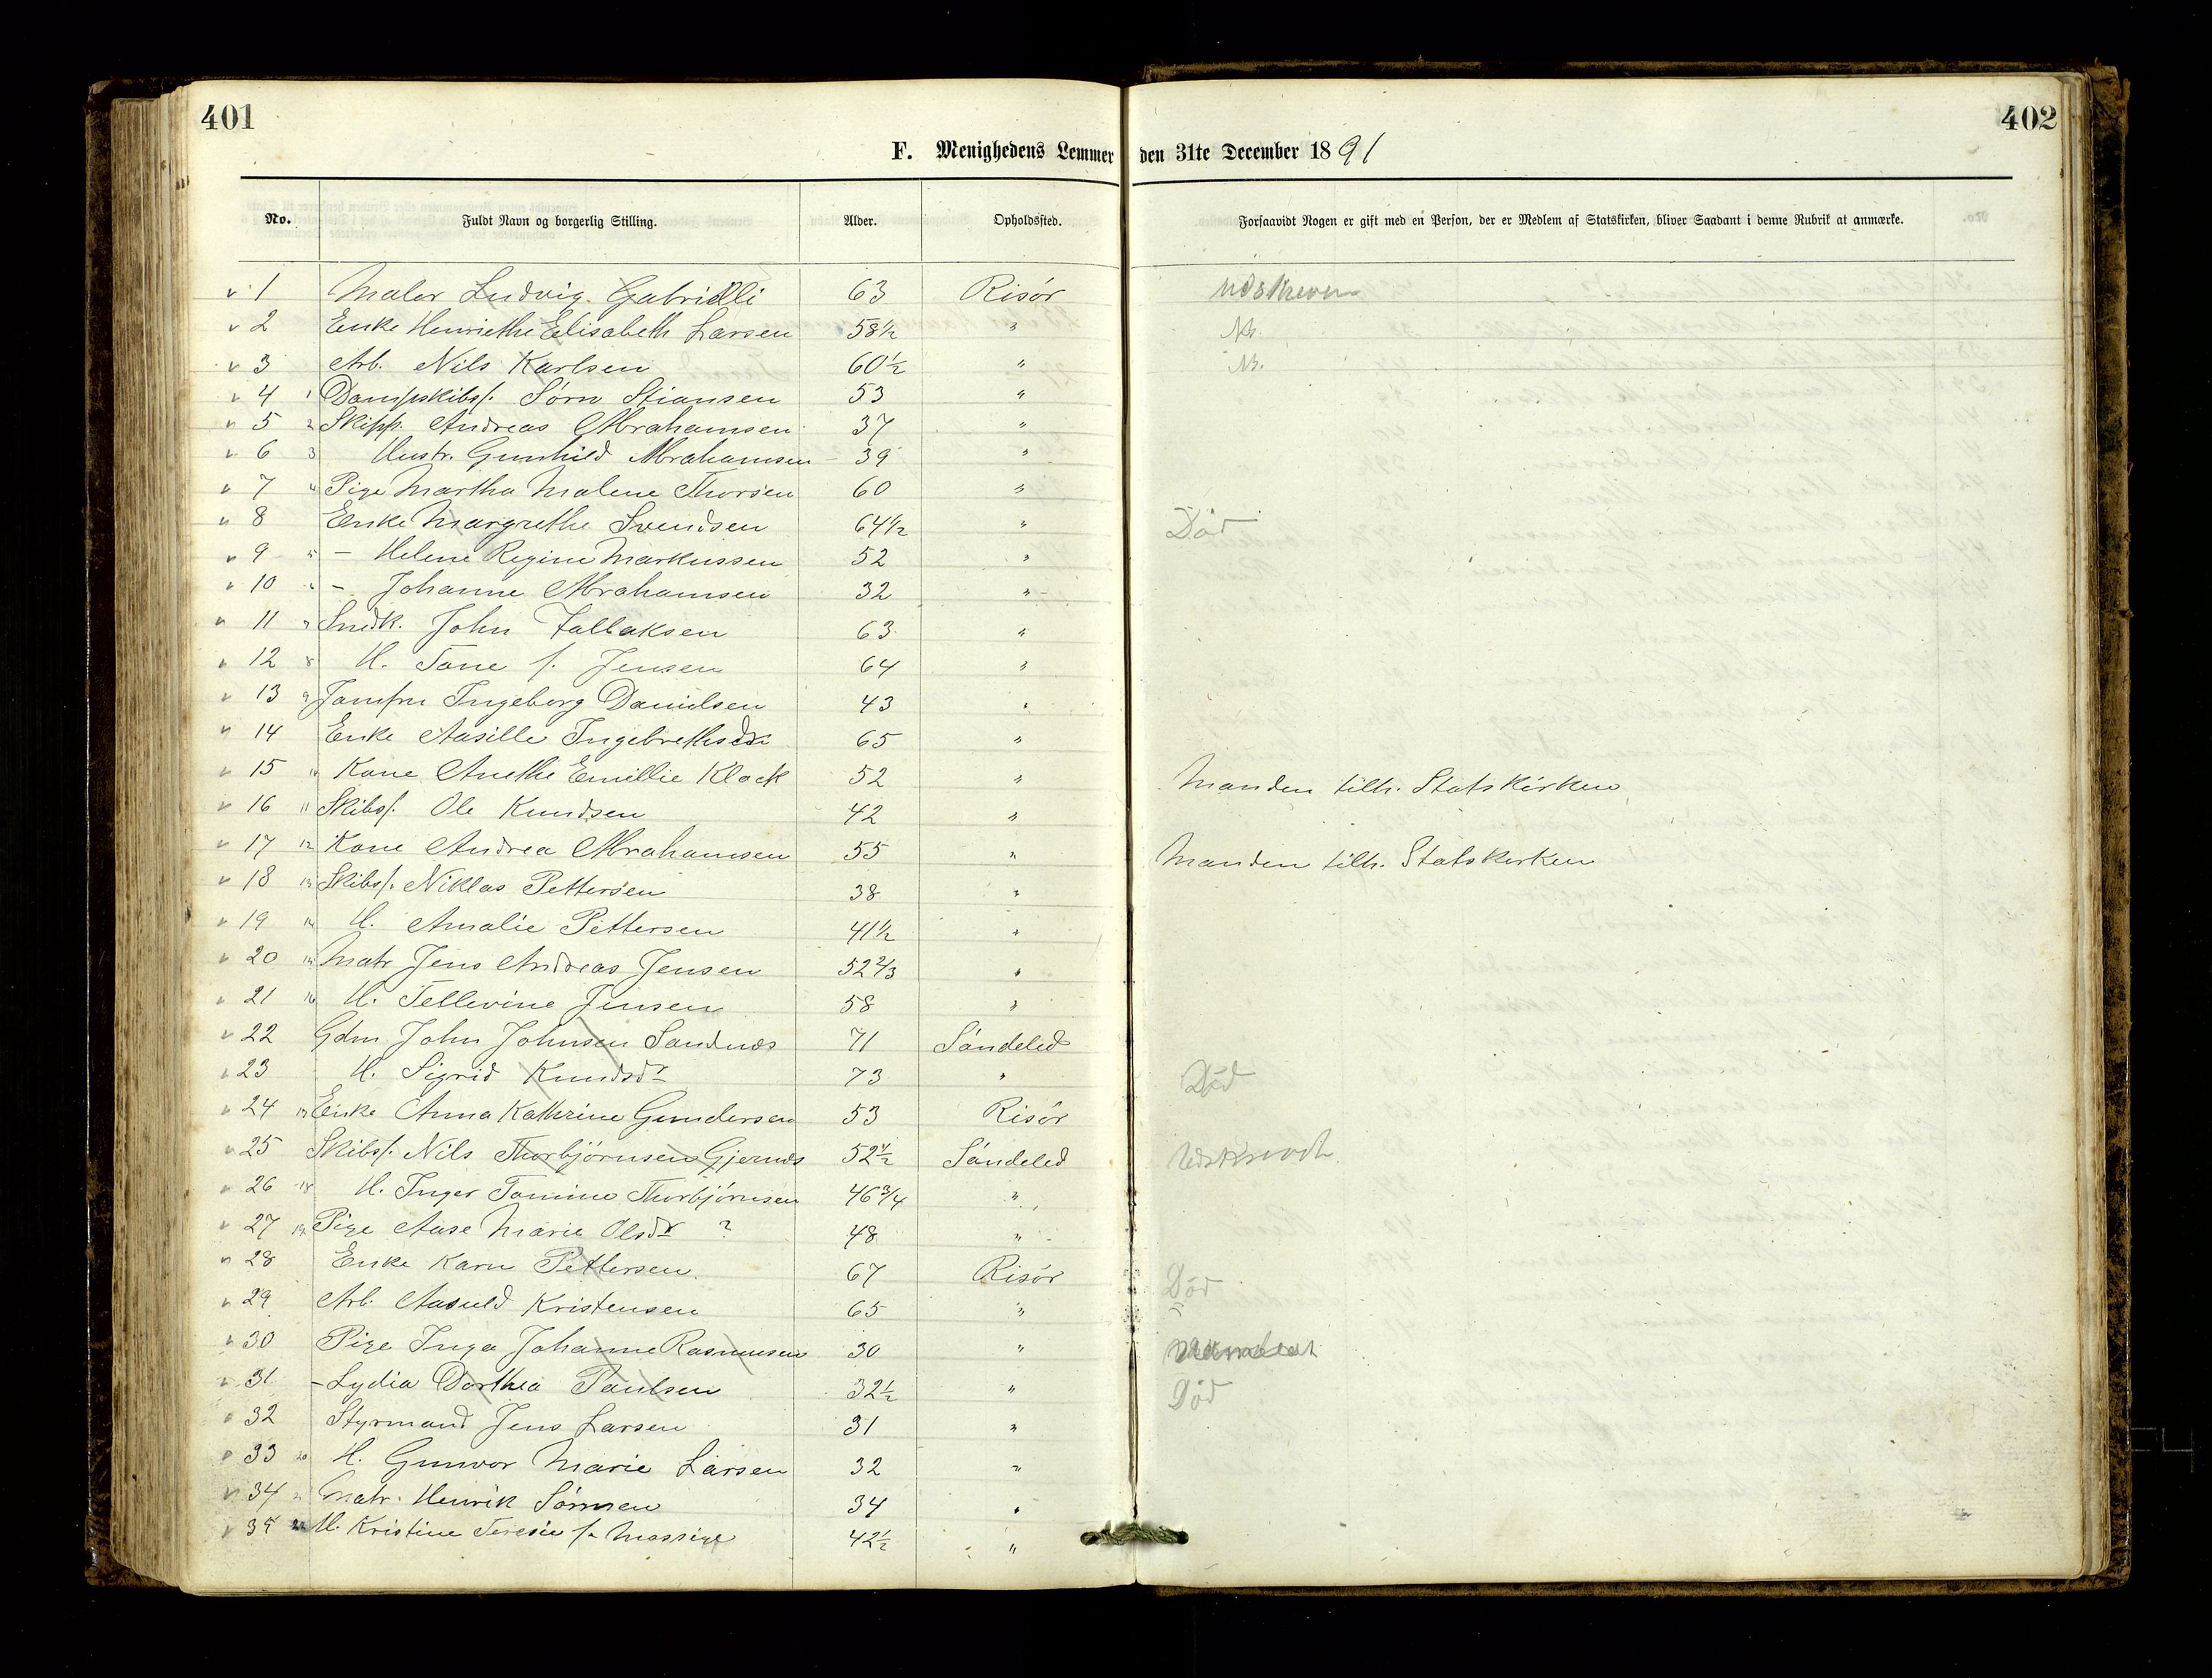 401
402
F. Menighedens Lemmer den 31te December 1891
No. Fuldt Navn og borgerlig Stilling. Alder. Opholdssted. Forsaavidt Nogen er gift med en Person, der er Medlem af Statskirken, bliver Saadant i denne Rubrik at anmærke.
1 Maler Ludvig Gabrielli 63 Risör Udskreven
2 Enke Henriethe Elisabeth Larsen 58 1/2 "
3 Arb. Nils Karlsen 60 1/2 "
4 1 Dampskibsf. Sörn Stiansen 53 "
5 2 Skipp. Andreas Abrahamsen 37 "
6 3 Hustr. Gunhild Abrahamsen 39 "
7 4 Pige Martha Malene Thorsen 60 "
8 Enke Margrethe Svendsen 64 1/2 " Död
9 5 - Helene Regine Markussen 52 "
10 6 - Johanne Abrahamsen 32 "
11 7 Snedk. John Tallaksen 63 "
12 8 H. Tone f. Jensen 64 "
13 9 Jomfru Ingeborg Danielsen 43 "
14 Enke Aasille Ingebrethsdr 65 "
15 10 Kone Anethe Emillie Klock 52 " Manden tilh. Statskirken
16 11 Skibsf. Ole Knudsen 42 "
17 12 Kone Andrea Abrahamsen 55 " Manden tilh. Statskirken
18 13 Skibsf. Niklas Pettersen 38 "
19 14 H. Amalie Pettersen 41 1/2 "
20 15 Matr Jens Andreas Jensen 52 2/3 "
21 16 H. Tellevine Jensen 58 "
22 Gdm John Johnsen Sandnes 71 Söndeled
23 H. Sigrid Knudsdr 73 " Död
24 17 Enke Anna Kathrine Gundersen 53 Risör
25 Skibsf. Nils Thorbjörnsen Gjernes 52 1/2 Söndeled Udskrevdt
26 18 H. Inger Tomine Thorbjörnsen 46 3/4 "
27 19 Pige Aase Marie Olsdr ? 48 "
28 Enke Karn Pettersen 67 Risör Död
29 Arb. Aasuld Kristensen 65 "
30 Pige Inga Johanne Rasmusen 30 "
31 - Lydia Dorthea Paulsen 32 1/2 " Död
32 Styrmand Jens Larsen 31 "
33 20 H. Gunvor Marie Larsen 32 "
34 21 Matr. Henrik Sörnsen 34 "
35 22 H. Kristine Teresie f. Mossige 42 1/2 "